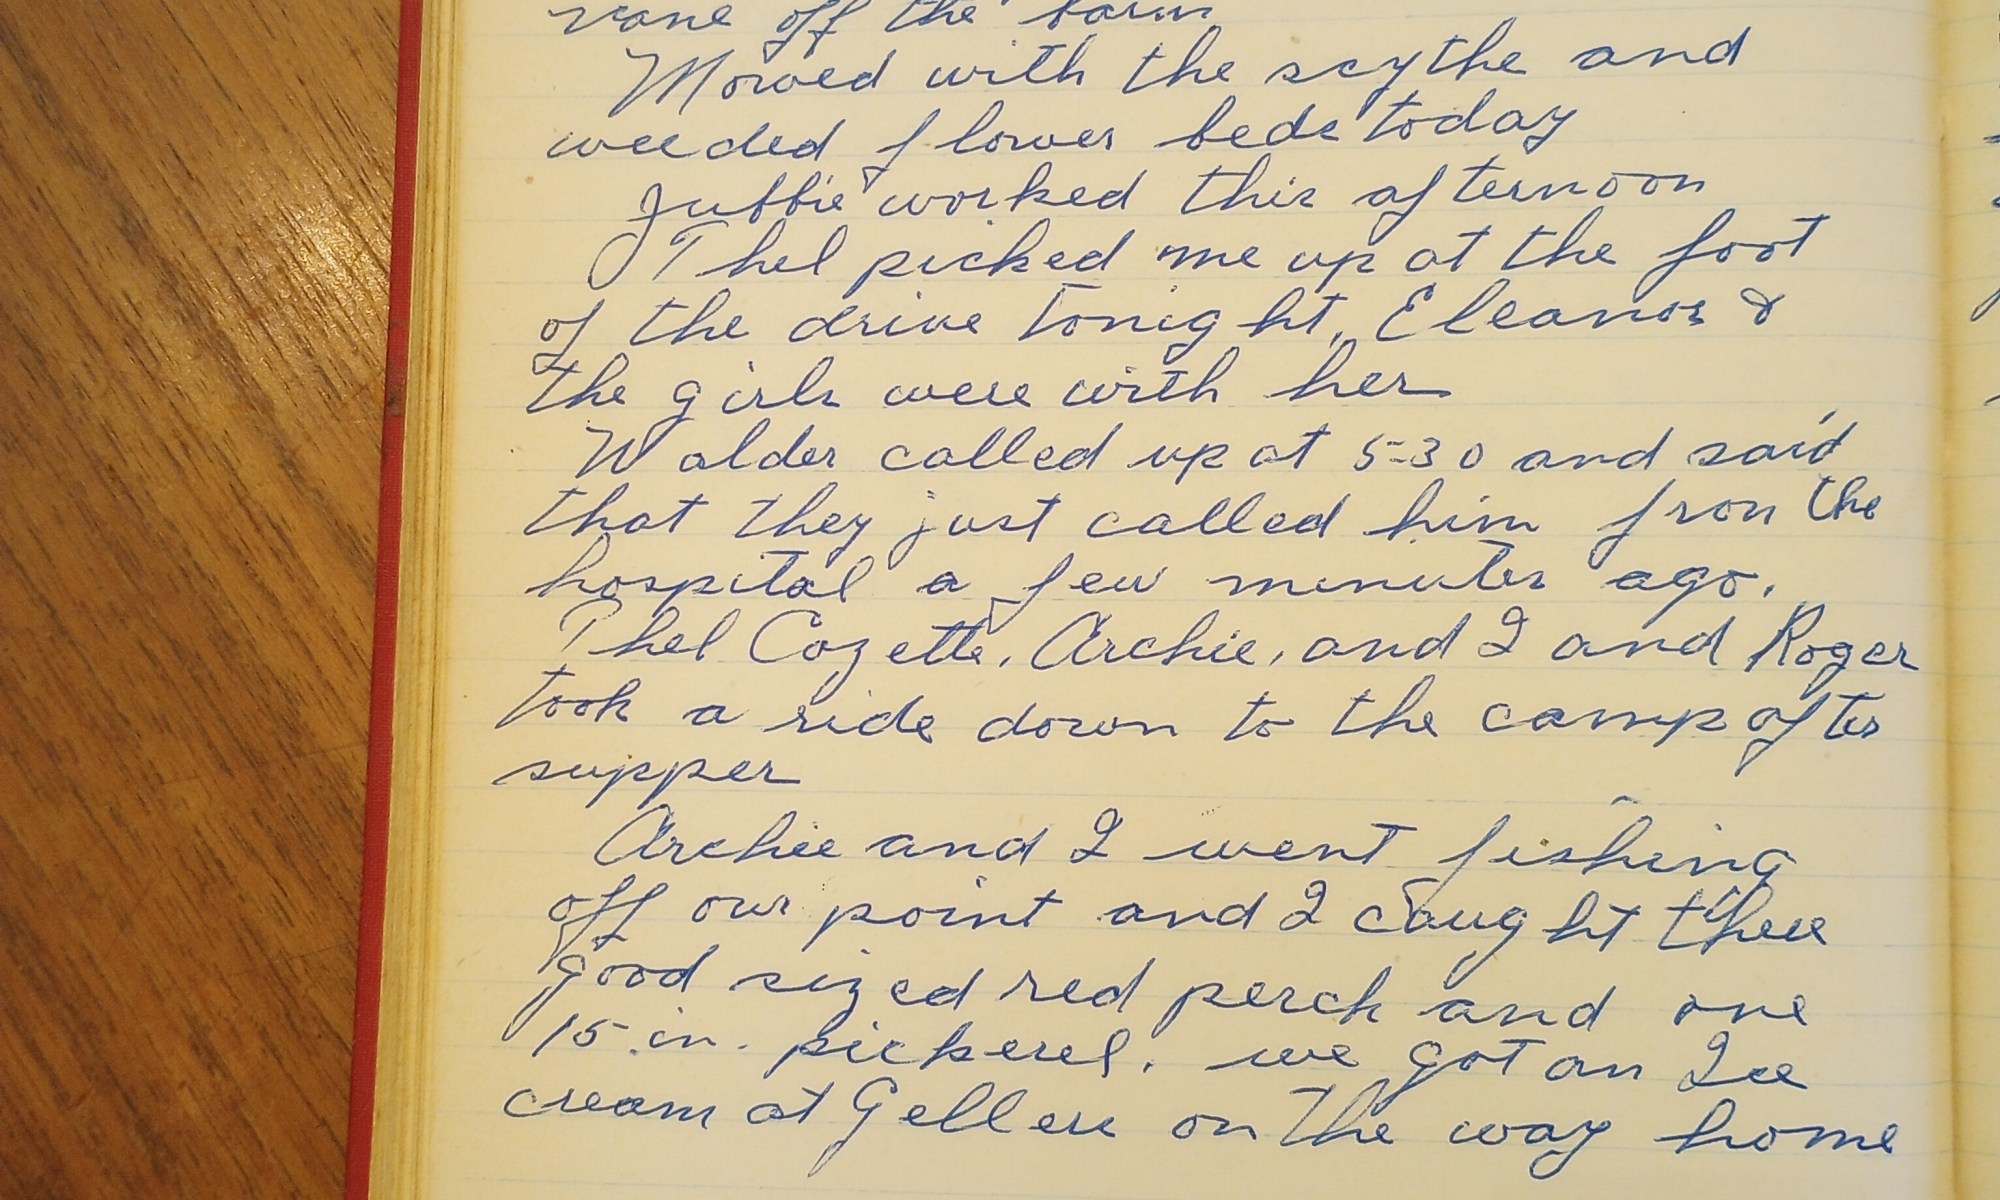 vane off the barn
Mowed with the scythe and
weeded flower beds today
worked this afternoon
Thel picked me up at the foot
of the drive tonight, Eleanor &
the girls were with her
Walder called up at 5-30 and said
that they just called him fron the
hospital a few minutes ago.
Thel Cozette, Archie, and I and Roger
took a ride down to the camp after
supper
Archie and I went fishing
off our point and I caught three
good sized red perch and one
15 in. pickerel. we got an Ice
cream at Gellers on the way home